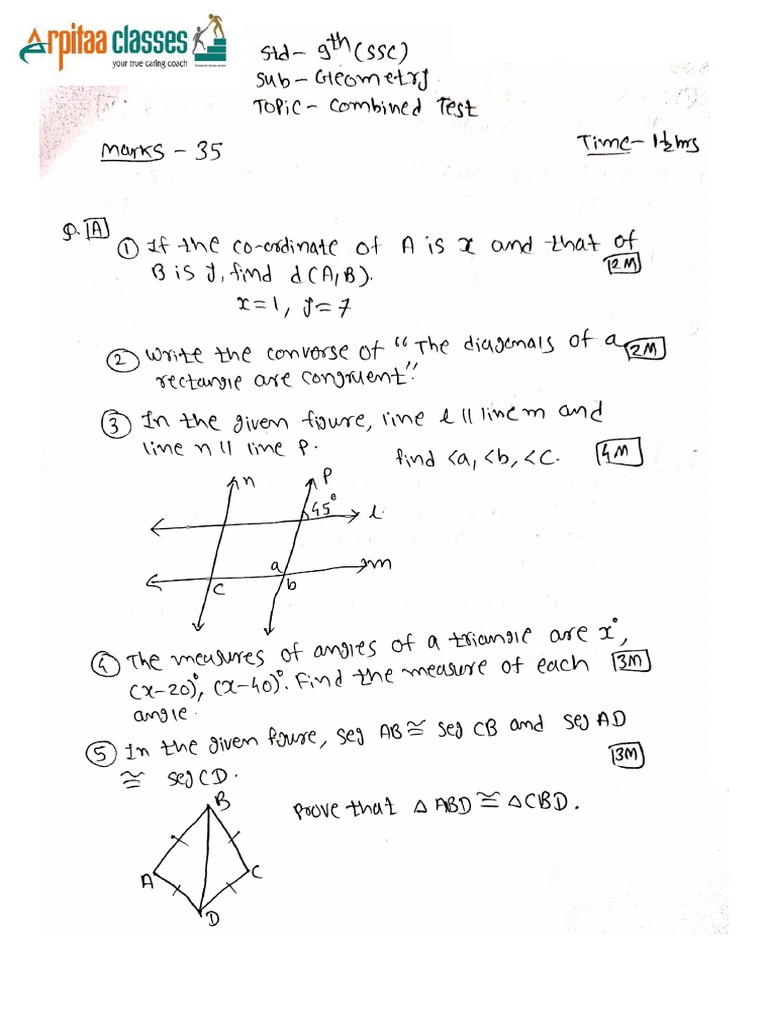 Arpitaa classes
your true caring coach
Std- 9th (SSC)
Sub- Geometry
Topic- Combined Test
Marks - 35
Time- 1½ hrs
Q. A
① If the co-ordinate of A is x and that of
B is y, find d(A,B). 2M
x=1, y=7
② Write the converse of "The diagonals of a 2M
rectangle are congruent".
③ In the given figure, line l || line m and
line n || line P.
find <a, <b, <c. 4M
n
P
45°
l
a
m
c
b
④ The measures of angles of a triangle are x°,
(x-20)°, (x-40)°. Find the measure of each 3M
angle.
⑤ In the given figure, seg AB ≅ seg CB and seg AD
≅ seg CD. 3M
Prove that △ ABD ≅ △CBD.
B
A
C
D